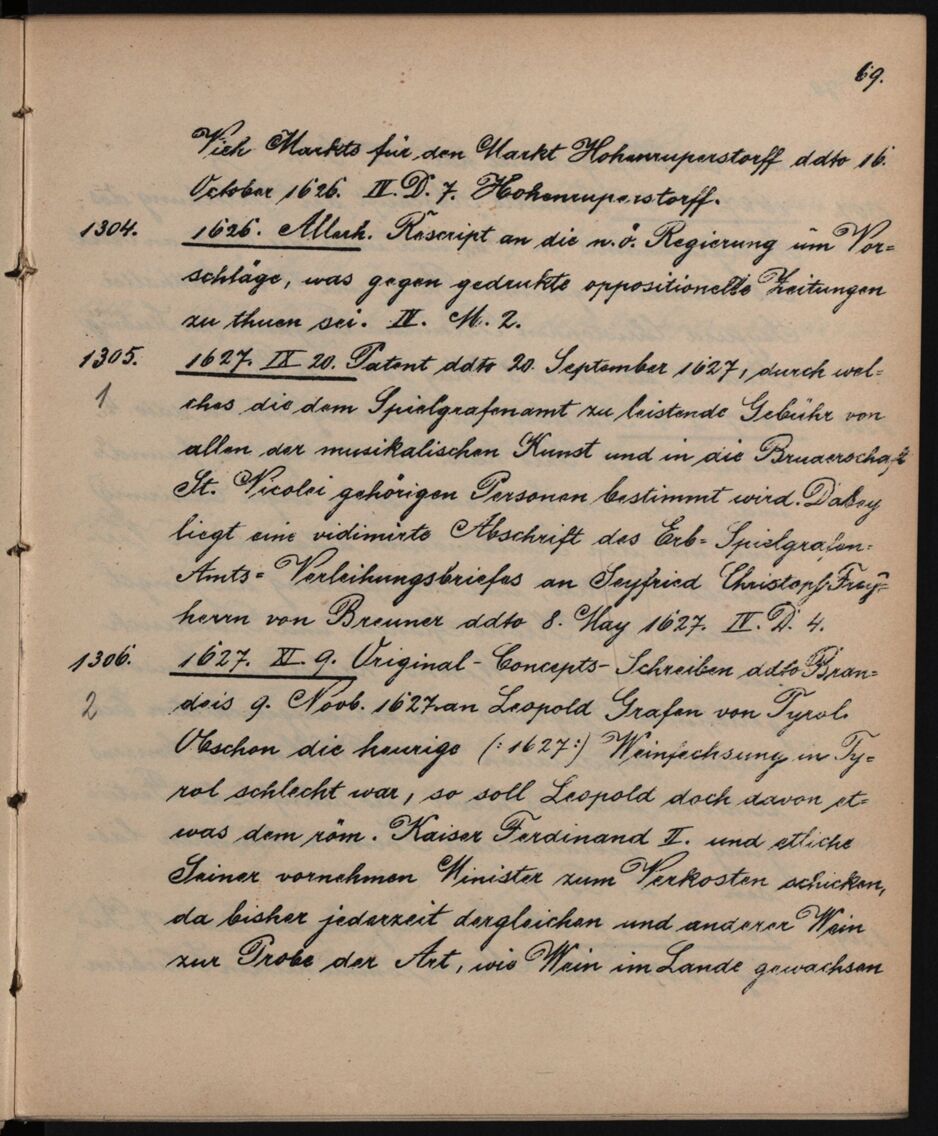 69.
Vieh Markts für den Markt Hohenruperstorff ddto 16.
October 1626. IV. D. 7. Hohenruperstorff.
1304. 1626. Allerh. Rescript an die n. ö. Regierung um Vor=
schläge, was gegen gedrukte oppositionelle Zeitungen
zu thuen sei. IV. M. 2.
1305. 1627. IX 20. Patent ddto 20. September 1627, durch wel=
1 ches die dem Spielgrafenamt zu leistende Gebühr von
allen der musikalischen Kunst und in die Bruderschaft
St. Nicolei gehörigen Personen bestimmt wird. Dabey
liegt eine vidimirte Abschrift des Erb= Spielgrafen=
Amts= Verleihungsbriefes an Seyfried Christoph Frey=
herrn von Breuner ddto 8. May 1627. IV. D. 4.
1306. 1627. XI. 9. Original-Concepts-Schreiben ddto Bran=
2 deis 9. Novb. 1627 an Leopold Grafen von Tyrol.
Obschon die heurige (:1627:) Weinfechsung in Ty=
rol schlecht war, so soll Leopold doch davon et=
was dem röm. Kaiser Ferdinand II. und etliche
Seiner vornehmen Minister zum Verkosten schicken,
da bisher jederzeit dergleichen und anderer Wein
zur Probe der Art, wie Wein im Lande gewachsen